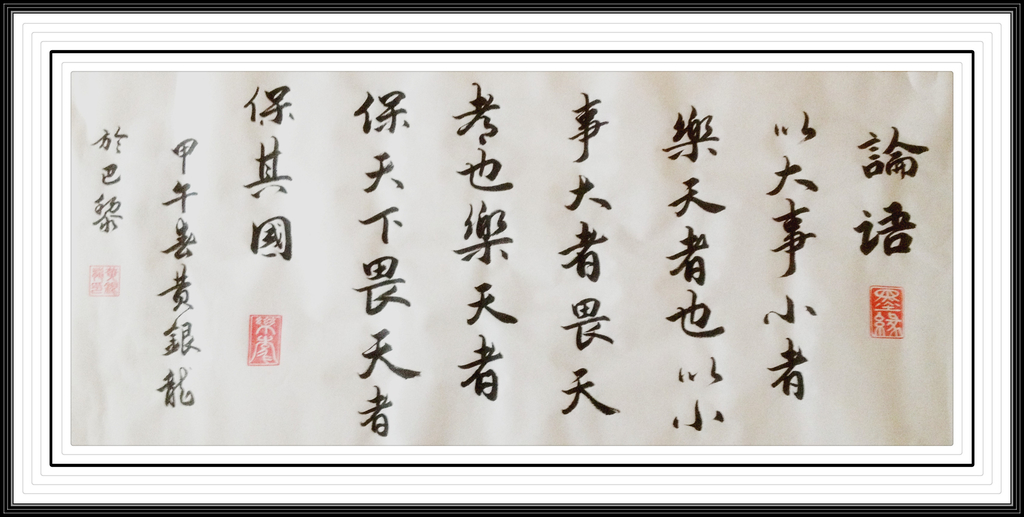 論語
墨緣
以大事小者
樂天者也以小
事大者畏天
者也樂天者
保天下畏天者
保其國
甲午春黃銀龍
於巴黎